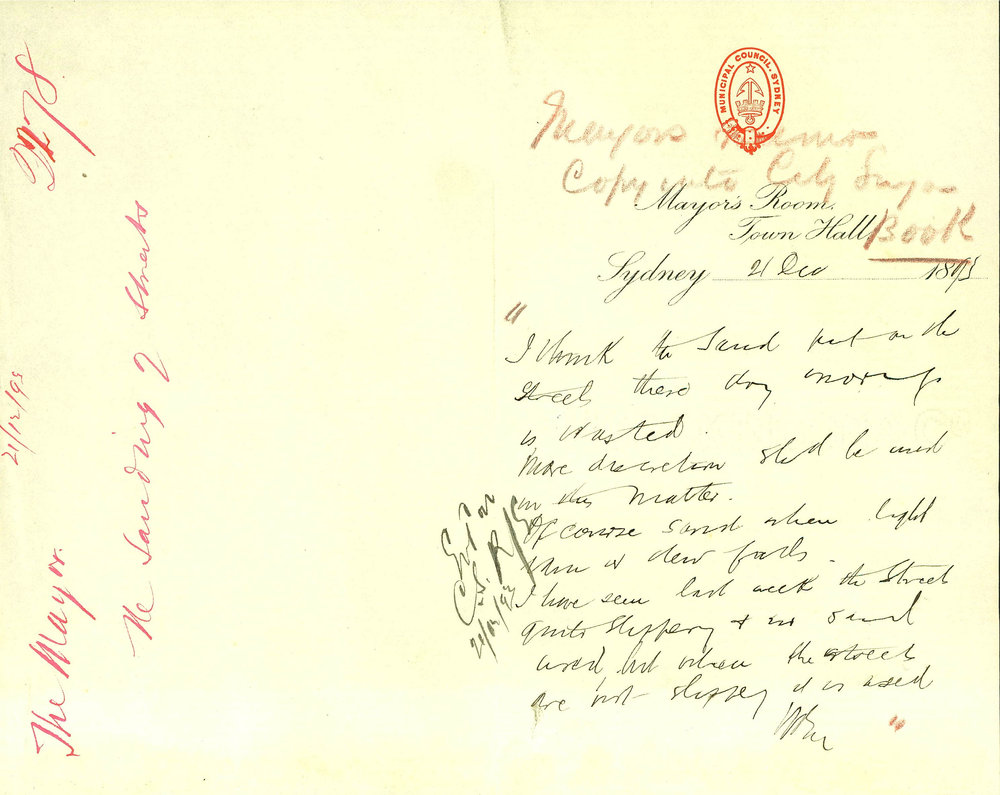 The Mayor.
Re Sanding of Streets
21/12/93
MUNICIPAL COUNCIL. SYDNEY
Mayors memo
Copy into City Suryrs
Book
Mayor's Room.
Town Hall,
Sydney 21 Dec 1893
"
I think the Sand put on the
Streets these dry mornings
is wasted.
More discretion shd be used
in this matter.
Of course sand when light
rain or dew falls.
I have seen last week the Street
quite slippery & no sand
used, but when the streets
are not slippery it is used
"
21/12/93